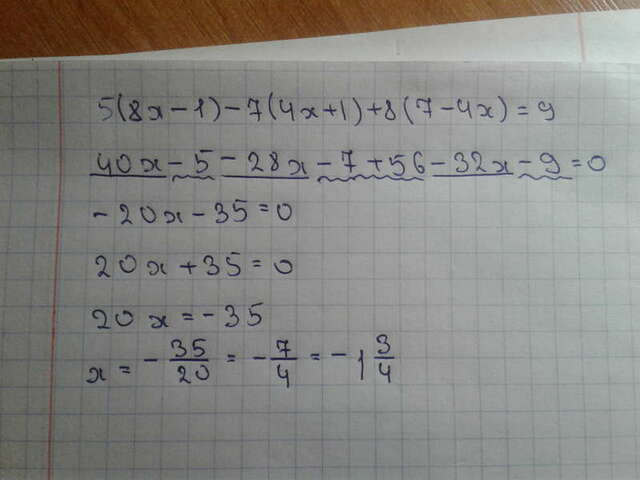 5(8x-1)-7(4x+1)+8(7-4x)=9
40x-5-28x-7+56-32x-9=0
-20x-35=0
20x+35=0
20x=-35
x=-35/20=-7/4=-1 3/4